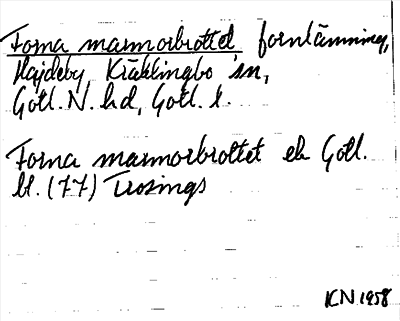 Forna marmorbrottet fornlämning,
Hajdeby Kräklingbo sn,
Gotl. N. hd, Gotl. l.
Forna marmorbrottet ek Gotl.
bl. (77) Trosings
KN 1958